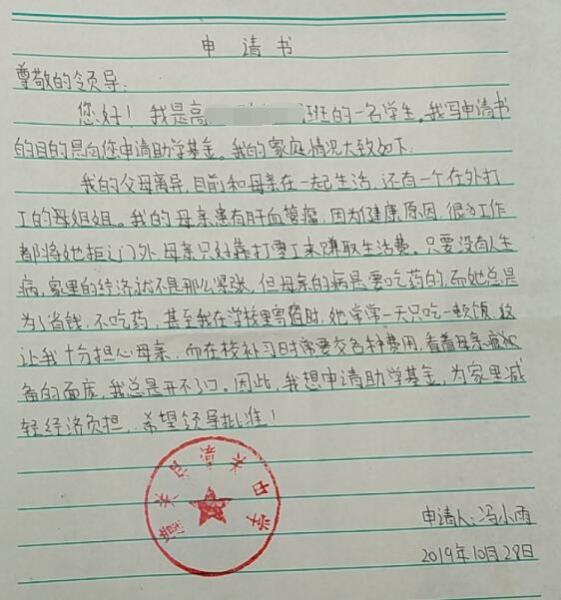 申请书
尊敬的令页导:
您好!我是高 班的一名学生。我写申请书
的目的是向您申请助学基金。我的家庭情况大致如下:
我的父母离异,目前和母亲在一起生活,还有一个在外打
工的姐姐。我的母亲患有肝血管瘤,因为健康原因,很多工作
都将她拒之门外,母亲只好靠打零工来赚取生活费。只要没有人生
病,家里的经济就不是那么紧张,但母亲的病是要吃药的,而她总是
为了省钱,不吃药,甚至我在学校里寄宿时,她常常一天只吃一顿饭,这
让我十分担心母亲,而在校补习时常要交各种费用,看着母亲疲惫
的面庞,我总是开不了口。因此,我想申请助学基金,为家里减
轻经济负担,希望领导批准!
中学
申请人:冯小雨
2019年10月29日